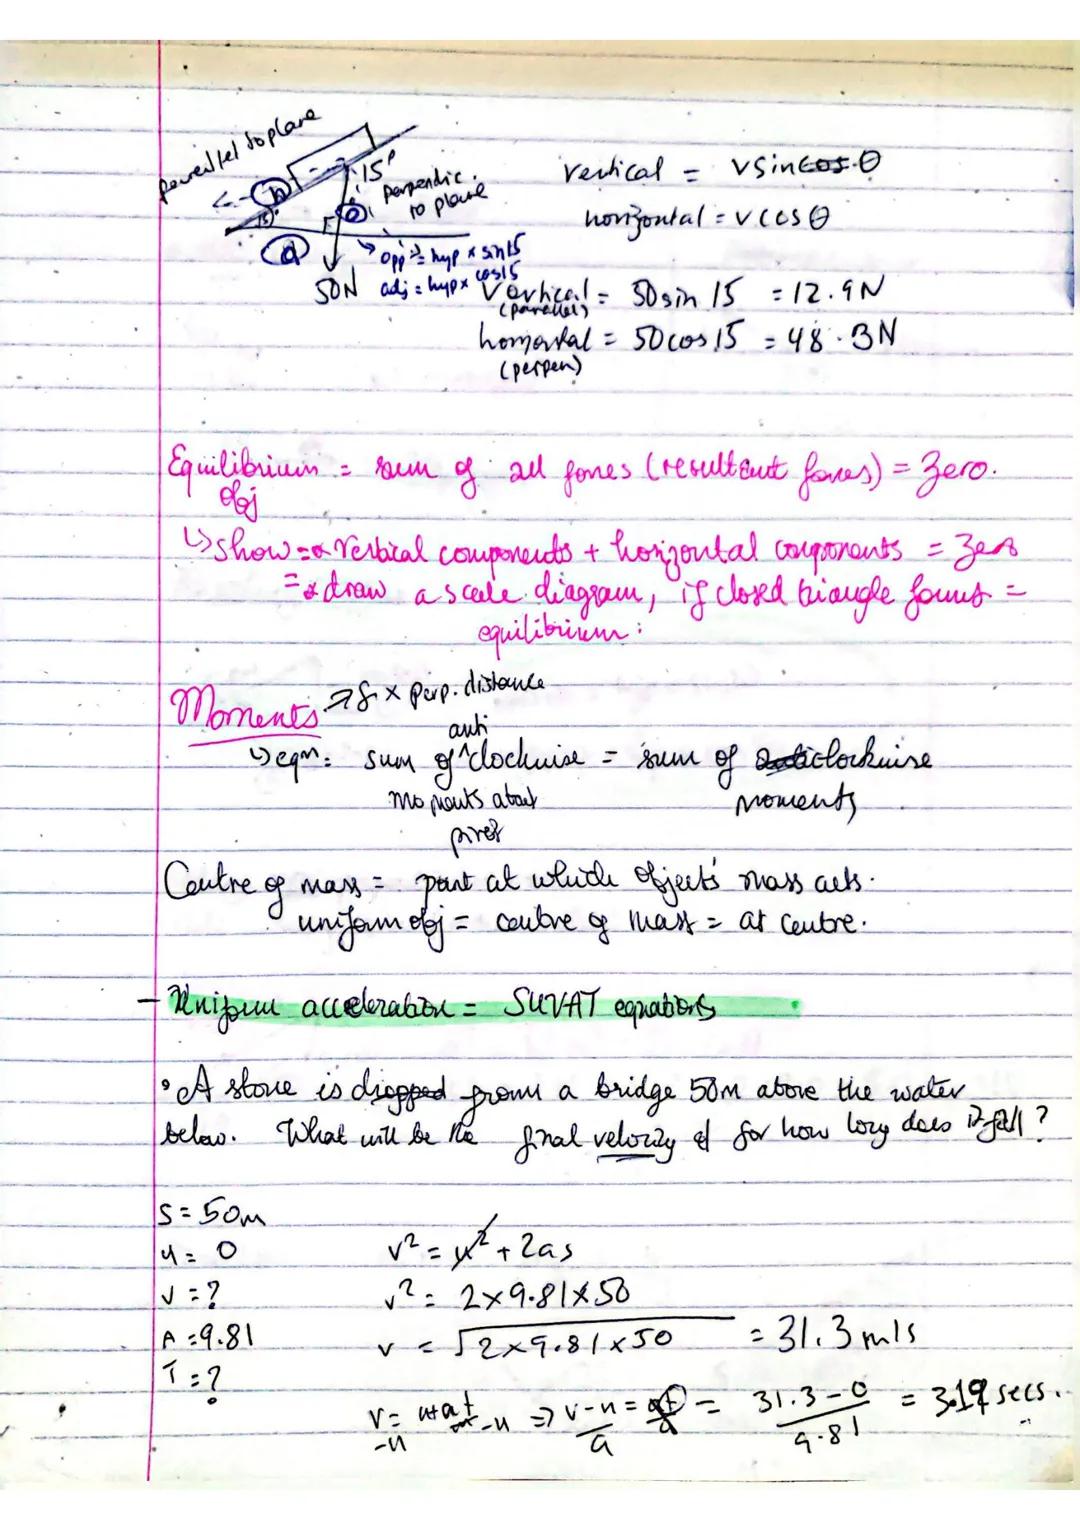 parallel to plane
15°
perpendic.
to plane
15°
h
o
a
50N
opp = hyp x sin15
adj = hyp x cos15
vertical = v sin cos θ
horizontal = v cos θ
Vertical = 50 sin 15 = 12.9N
(parallel)
horizontal = 50 cos 15 = 48.3N
(perpen)
Equilibrium = sum of all forces (resultant forces) = zero.
obj
↳ show = * vertical components + horizontal components = zero
= * draw a scale diagram, if closed triangle forms =
equilibrium:
Moments → f x perp. distance
anti
↳ eqm: sum of ^clockwise = sum of anticlockwise
moments about moments
pivot
Centre of mass = point at which object's mass acts.
uniform obj = centre of mass = at centre.
- Uniform acceleration = SUVAT equations
• A stone is dropped from a bridge 50m above the water
below. What will be the final velocity & for how long does it fall?
S = 50m
u = 0
v² = u² + 2as
v = ?
v² = 2x9.81x50
A = 9.81
v = √2x9.81x50 = 31.3 m/s
T = ?
v = u+at ⇒ v-u = at = 31.3-0 = 3.19 secs.
-u -u a a 9.81